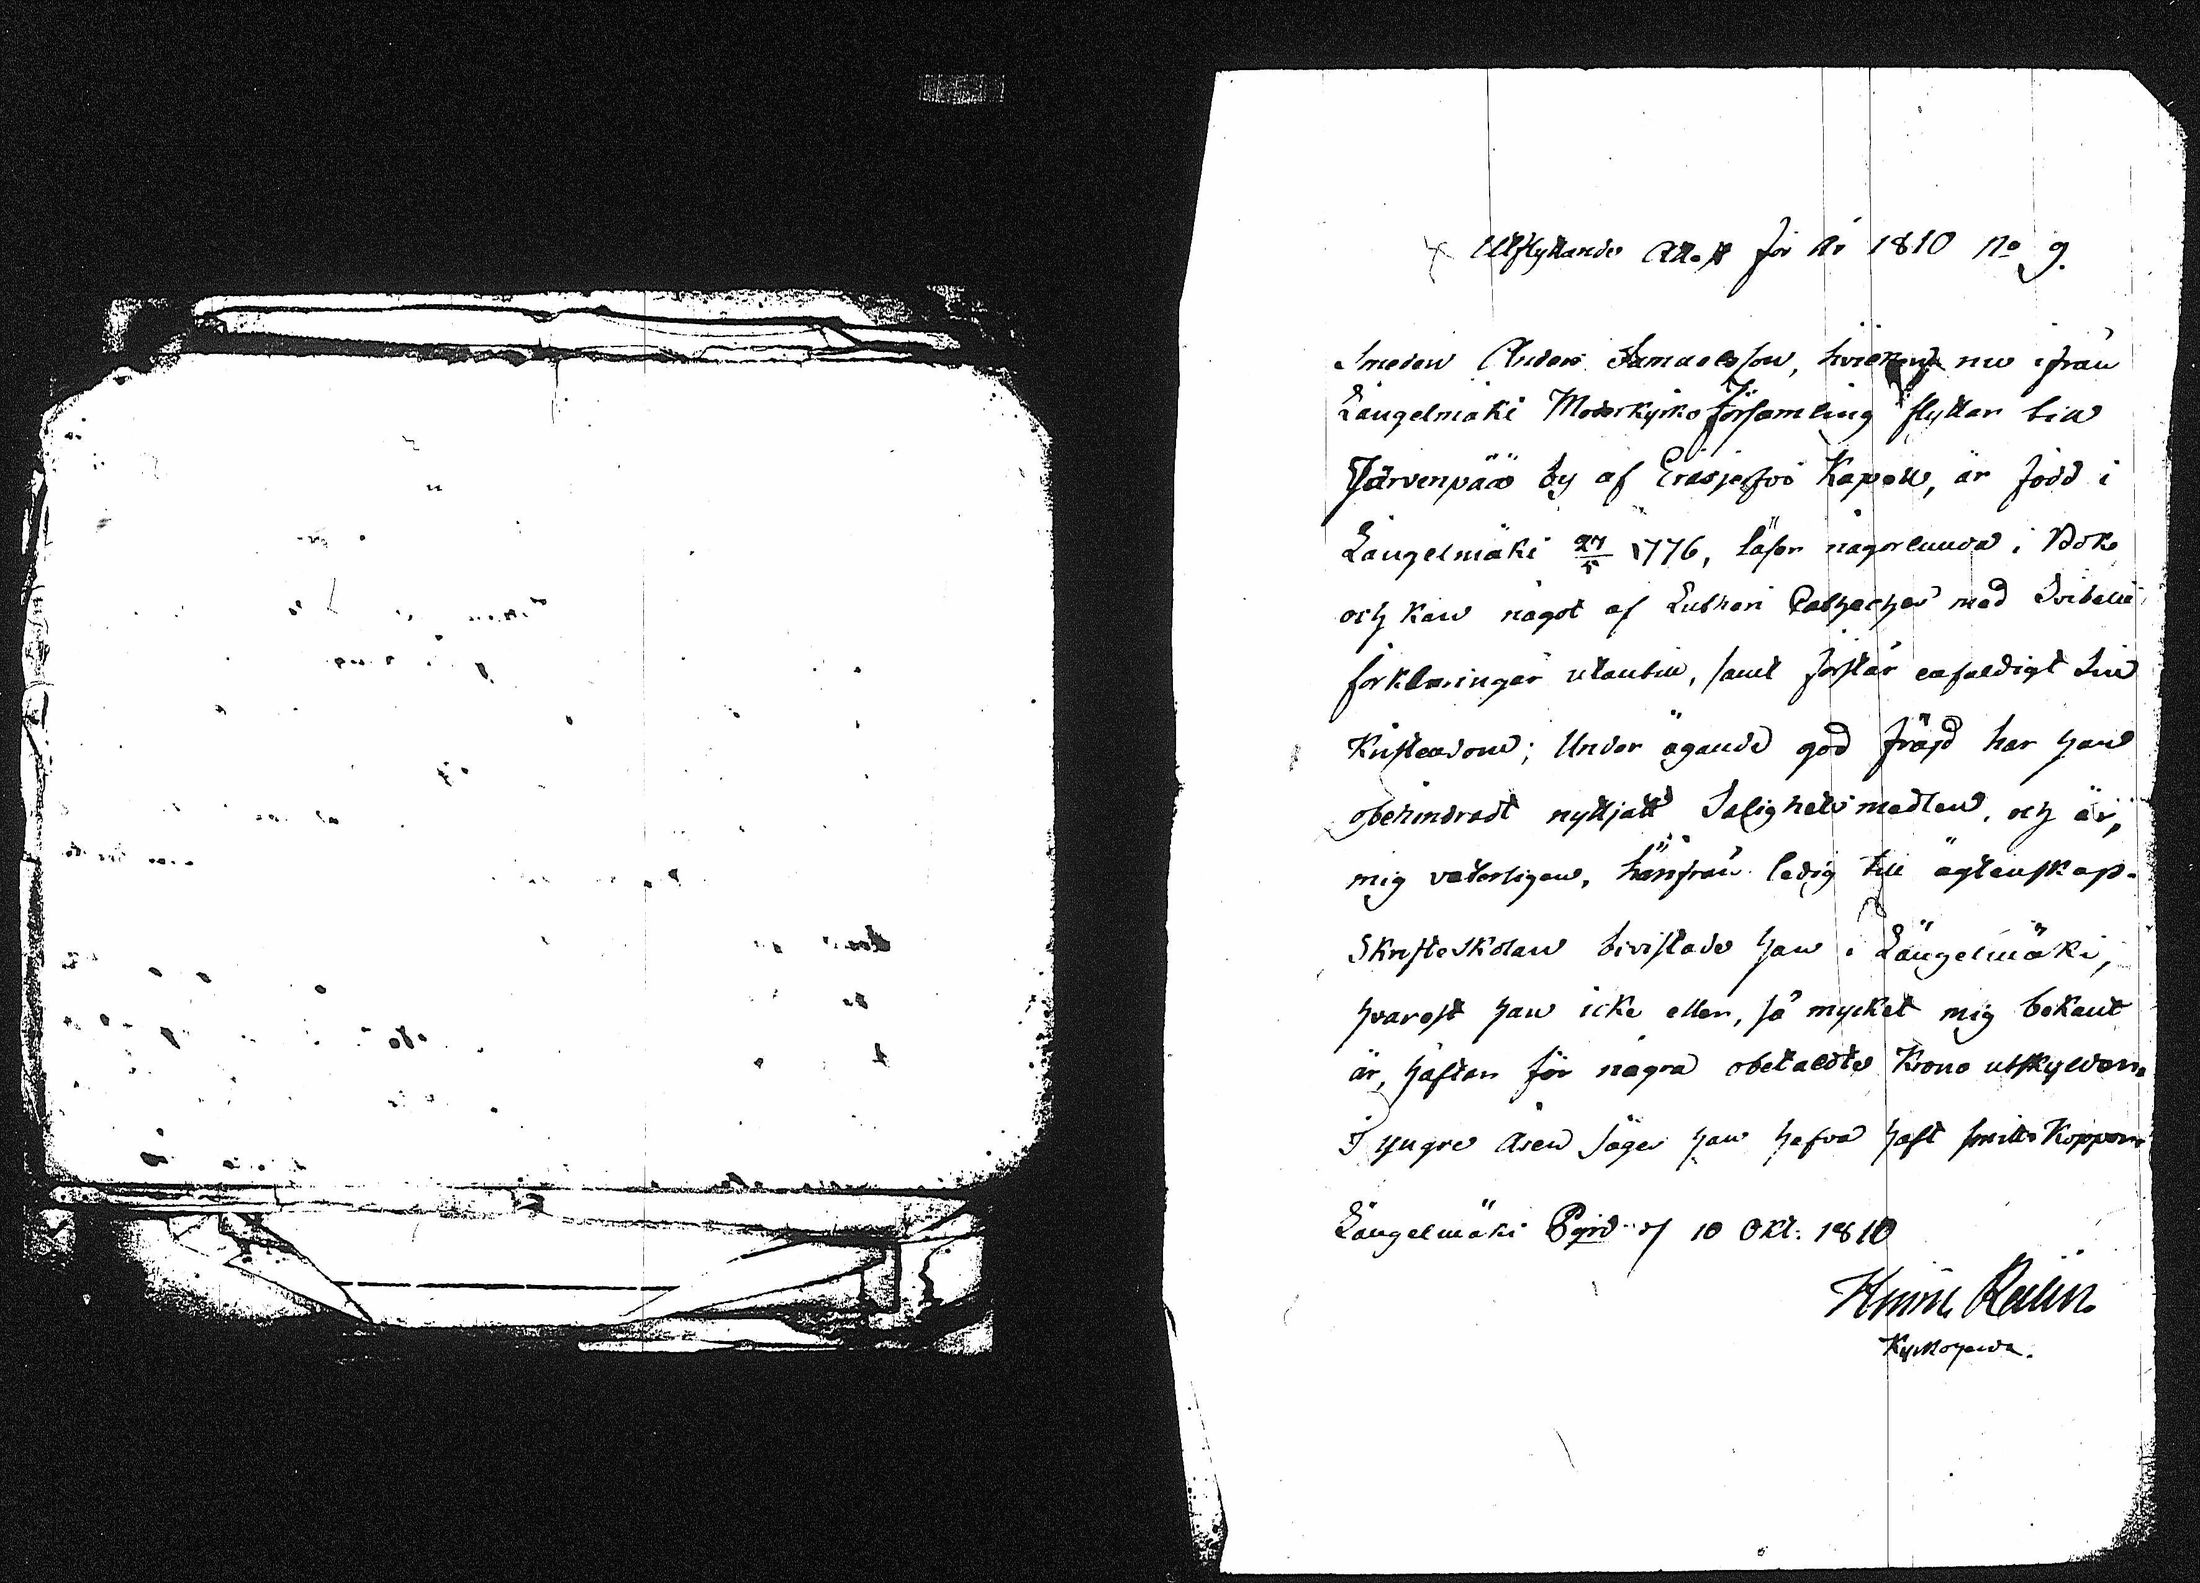 Utflyttande Att. för År 1810 No 9.
Smeden Anders Samuelsson, hvilken nu ifrån
Längelmäki Moderkyrko Församling flyttar till
Järvenpää by af Eräsjerfvi Kapell, är född i
Längelmäki 27/5 1776, läser någorlunda i Bok
och kan något af Lutheri Catheches med Svibelii
förklaringar utantill, samt förstår enfaldigt sin
Kristendom; Under ägande god fräjd har han
obehindradt nyttjatt Salighets medlen, och är,
mig veterligen, härifrån ledig till ägtenskap.
Skrifteskolan bivistade han i Längelmäki,
hvarest han icke eller, så mycket mig bekant
är, häftar för några obetaldte Krono utskylder.
I yngre åren säges han hafva haft smitt Koppor.
Längelmäki Pgrd d 10 Okt. 1810
Henric
Kyrkoherde.